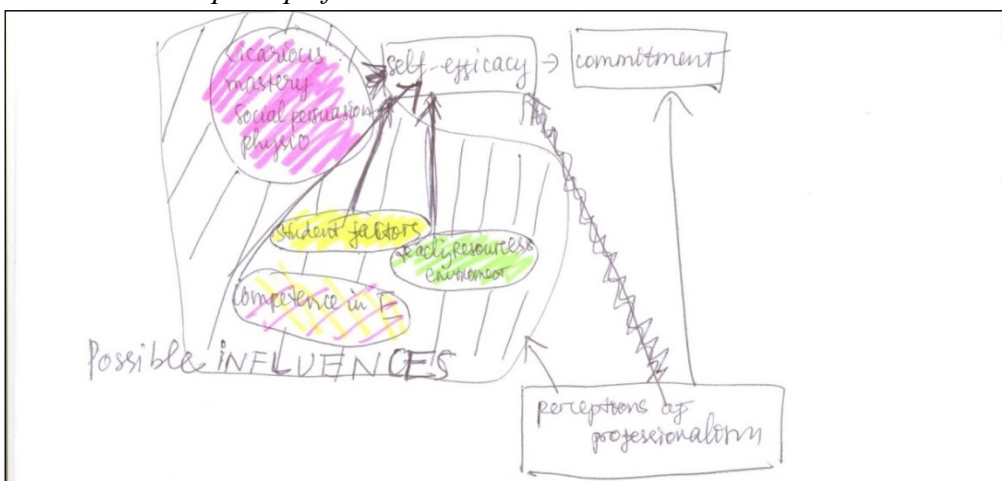 vicarious
mastery
social persuasion
physio
self-efficacy
commitment
student factors
resources
environment
competence in E
Possible INFLUENCES
perceptions of
professionalism